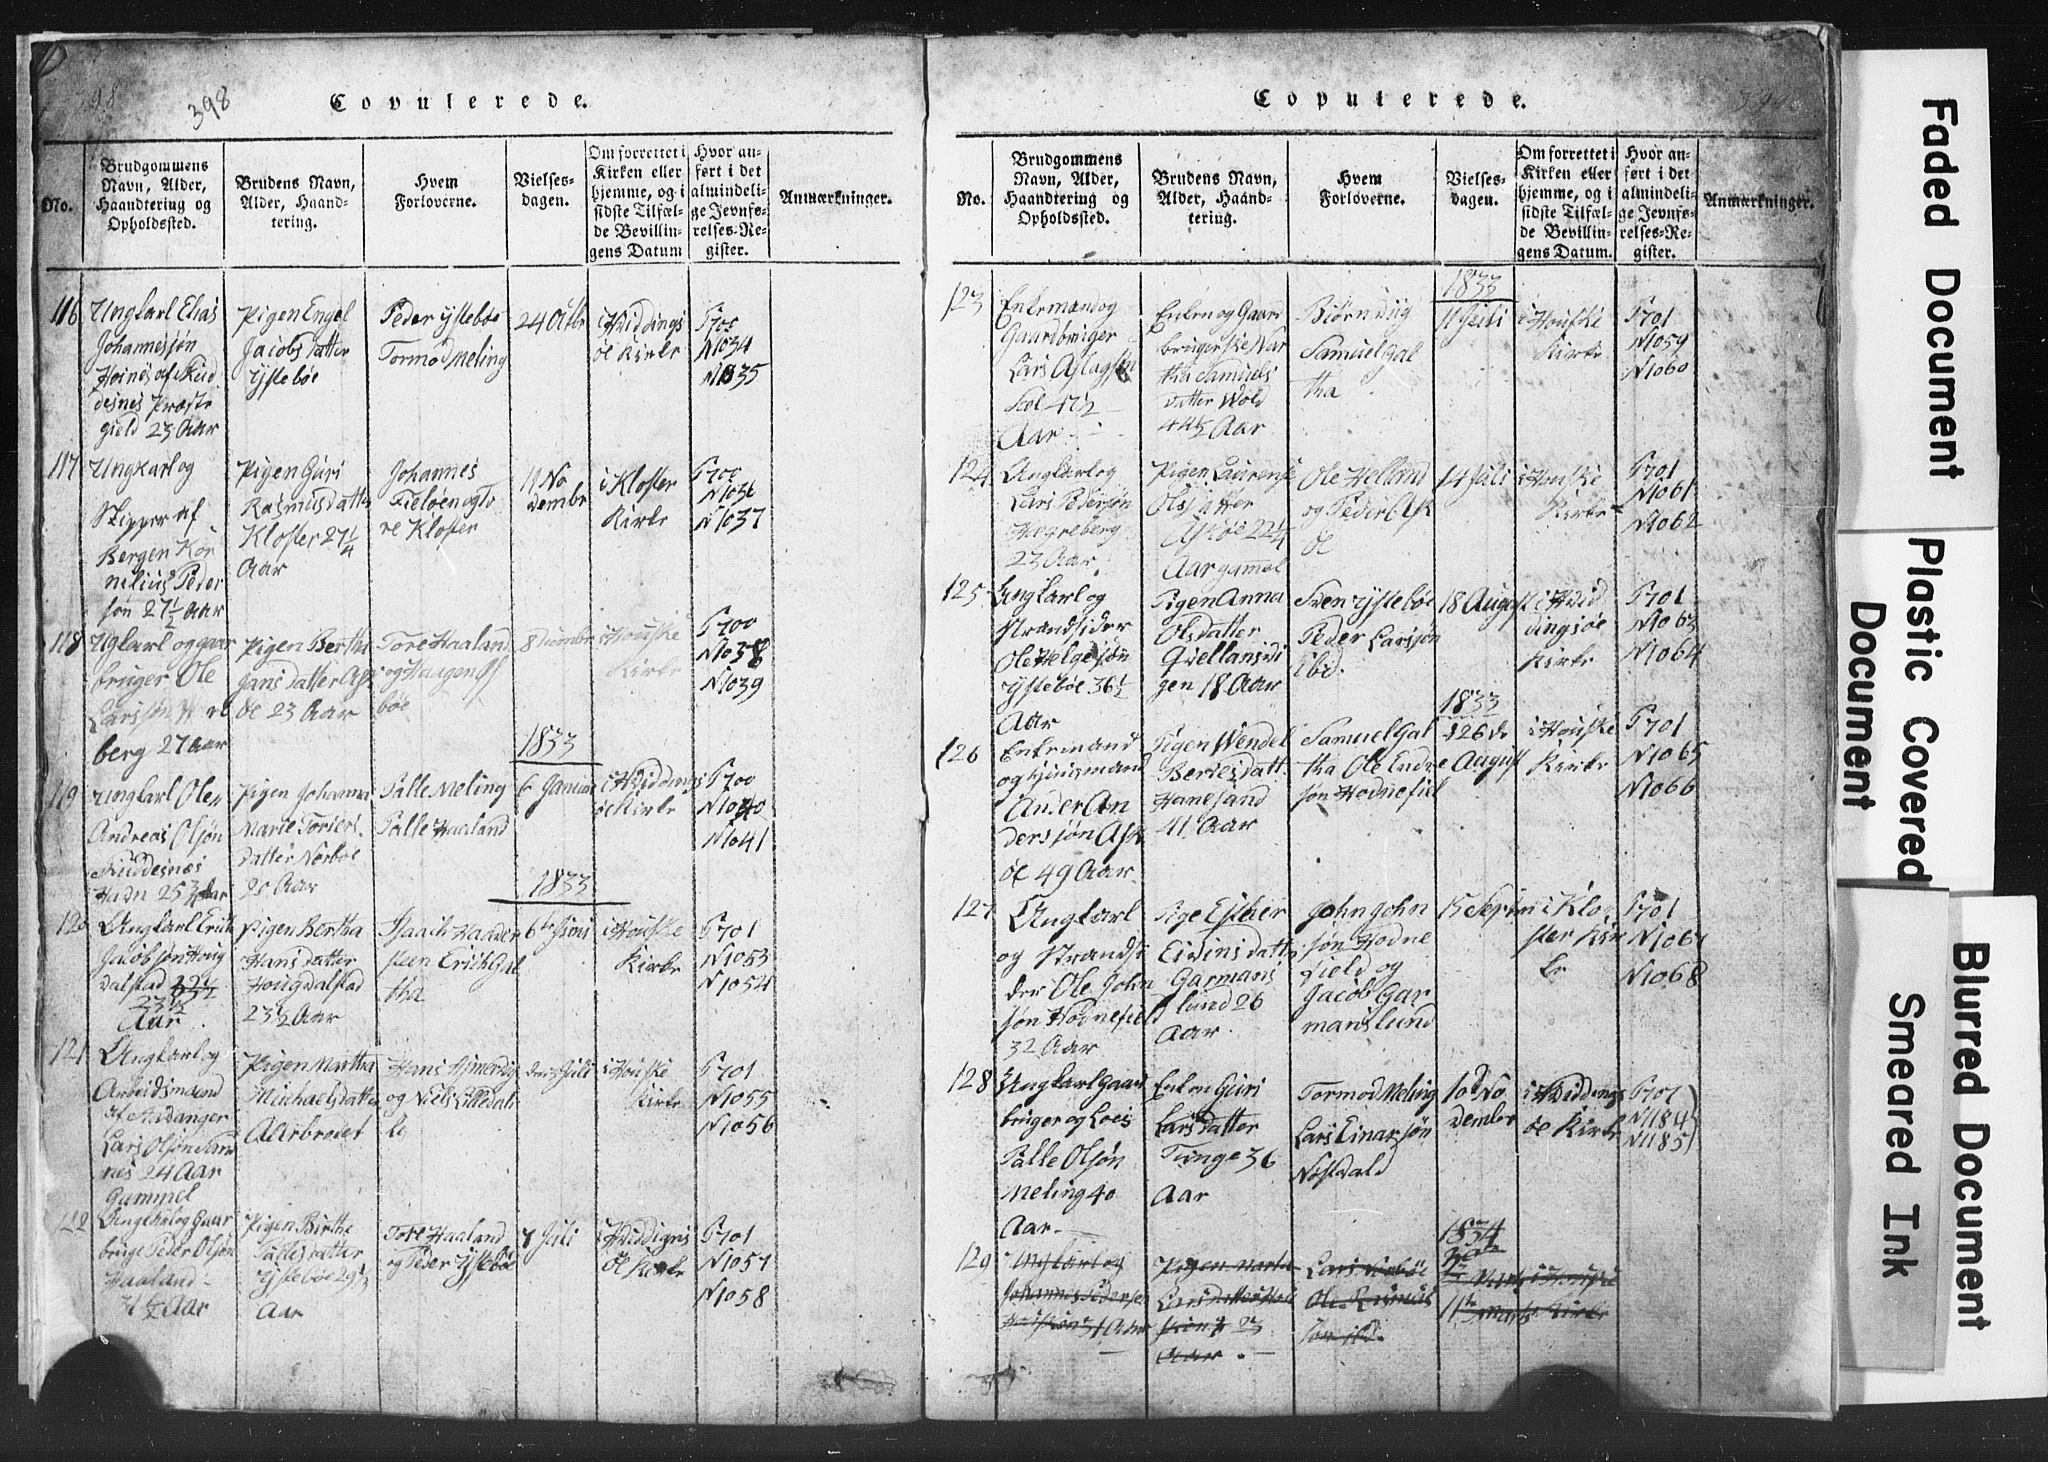 398
Copulerede.
No.
Brudgommens
Navn, Alder,
Haandtering og
Opholdssted.
Brudens Navn,
Alder, Haand-
tering.
Hvem
Forloverne.
Vielses-
dagen.
Om forrettet i
Kirken eller
hjemme, og i
sidste Tilfæl-
de Bevillin-
gens Datum
Hvor an-
ført i det
almindeli-
ge Jevnfø-
relses-Re-
gister.
Anmærkninger.
116
Ungkarl Elias
Johannessøn
Hoines af Skud
desnes Præste
gield 23 Aar
Pigen Engel
Jacobsdatter
Ystebøe
Peder Ystebøe
Tormod Meling
24 Octbr
i Hviddings
øe Kirke
F700
N1034
N1035
117
Ungkarl og
Skipper af
Bergen Kor
nelius Peder
søn 27½ Aar
Pigen Guri
Rasmusdatter
Kloster 27¼
Aar
Johannes
Fieløen og To
re Kloster
11 No
vembr
i Kloster
Kirke
F700
N1036
N1037
118
Ugkarl og gaar
bruger Ole
Larssøn
berg 27 Aar
Pigen Bertha
Jansdatter Ask
øe 23 Aar
Tore Haaland
og Haagen
bøe
8 Decembr
i Houske
Kirke
F700
N1038
N1039
119
Ungkarl Ole
Andreas Olsøn
Skuddesnes
Havn 25¾ Aar
Pigen Johanna
Marie Toriers
datter Norbøe
20 Aar
Palle Meling
Palle Haaland
1833
6 Januar
i Hviddings
øe Kirke
F700
N1040
N1041
120
Ungkarl Erich
Jacobsøn Houg
dalstad
23½
Aar
Pigen Bertha
Hansdatter
Hougdalstad
23½ Aar
Isaach Haaden
steen Erich Gal
tha
1833
6te Juni
i Houske
Kirke
F701
N1053
N1054
121
Ungkarl og
Arbeidsmand
af Stavanger
Lars Olsøn
nes 24 Aar
Gammel
Pigen Martha
Michaelsdatter
Aarbroiet
Hans
og Niels Lilledals
li
den 5 Juli
i Houske
Kirke
F701
N1055
N1056
122
Ungkarl og Gaar
bruge Peder Olsøn
Haaland
31½ Aar
Pigen Birthe
Pallesdatter
Ystebøe 29½
Aar
Tore Haaland
og Peder Ystebøe
7 Juli
i Hviddings
øe Kirke
F701
N1057
N1058
Copulerede.
No.
Brudgommens
Navn, Alder,
Haandtering og
Opholdssted.
Brudens Navn,
Alder, Haand-
tering.
Hvem
Forloverne.
Vielses-
dagen.
Om forrettet i
Kirken eller
hjemme, og i
sidste Tilfæl-
de Bevillin-
gens Datum.
Hvor an-
ført i det
almindeli-
ge Jevnfø-
relses-Re-
gister.
Anmærkninger.
123
Enkemand og
Gaardbruger
Lars Aslagsøn
Sæl 47½
Aar
Enken og Gaard
brugerske Mar
tha Samuels
datter Wold
44½ Aar
Biørn Dug
Samuel Gal
tha
1833
11 Juli
i Houske
Kirke
F701
N1059
N1060
124
Ungkarl og
Lars Pedersøn
Hegreberg
23 Aar
Pigen Laurense
Olsdatter
Askøe 22¼
Aar gamel
Ole Helland
og Peder Ask
øe
14 Juli
i Houske
Kirke
F701
N1061
N1062
125
Ungkarl og
Strandsider
Ole Helgesøn
Ystebøe 36½
Aar
Pigen Anna
Olsdatter
Qvellansvi
gen 18 Aar
Sven Ystebøe
Peder Larsøn
ibid.
18 August
i Hvid
dingsøe
Kirke
F701
N1063
N1064
126
Enkemand
og Huusmand
Ander An
derssøn Ask
øe 49 Aar
Pigen Wendel
Bertesdatt.
Hanesand
41 Aar
Samuel Gal
tha Ole Endre
søn Hodnefiel
1833
d 26de
August
i Houske
Kirke
F701
N1065
N1066
127
Ungkarl
og Strandsi
der Ole John
søn Hodnefield
32 Aar
Pige Esther
Eivinsdatter
Garmans
lund 26
Aar
John John
søn Hodne
field og
Jacob Gar
manslund
15 Septem
i Klo
ster Kir
ke
F701
N1067
N1068
128
Ungkarl Gaard
bruger og Loes
Palle Olsøn
Meling 40
Aar
Enken Guri
Larsdatter
Tunge 36
Aar
Tormod Meling
Lars Einarsøn
Nostdald
10d No
vember
i Hviddings
øe Kirke
F701
N1184
N1185
129
Ungkarl og
Johannes Pedersen
Aar
Pigen Marta
Larsdatter
23
Aar
Lars Norbøe
Ole Rasmus
søn ibd.
1834
11te Marts
i Houske
Kirke
Faded Document
Plastic Covered
Document
Blurred Document
Smeared Ink